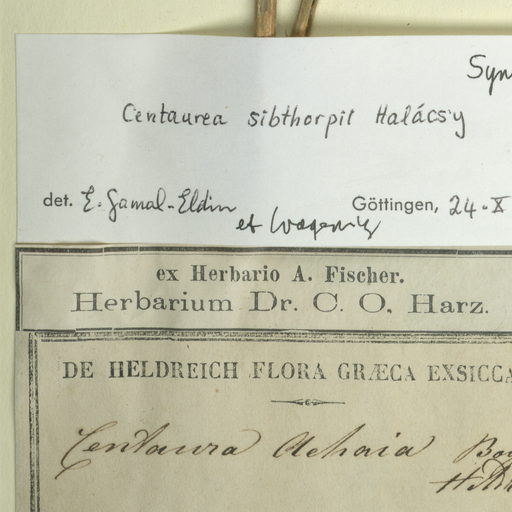 Syn
Centaurea sibthorpii Halácsy
det. E. Gamal-Eldin Göttingen, 24.X
et Wagenitz
ex Herbario A. Fischer.
Herbarium Dr. C. O. Harz.
DE HELDREICH FLORA GRÆCA EXSICCA
Centaura Achaia